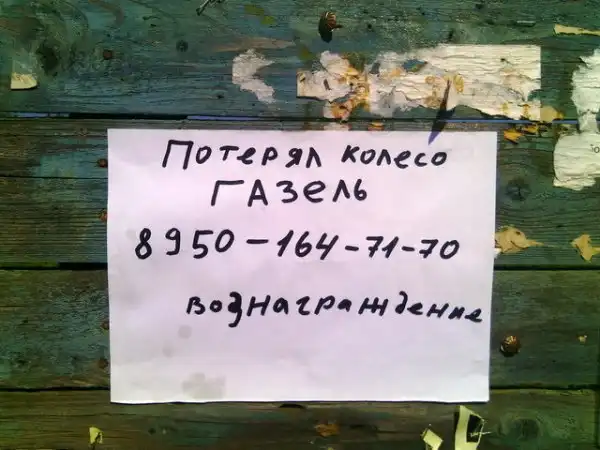 Потерял колесо
ГАЗель
8950-164-71-70
вознаграждение